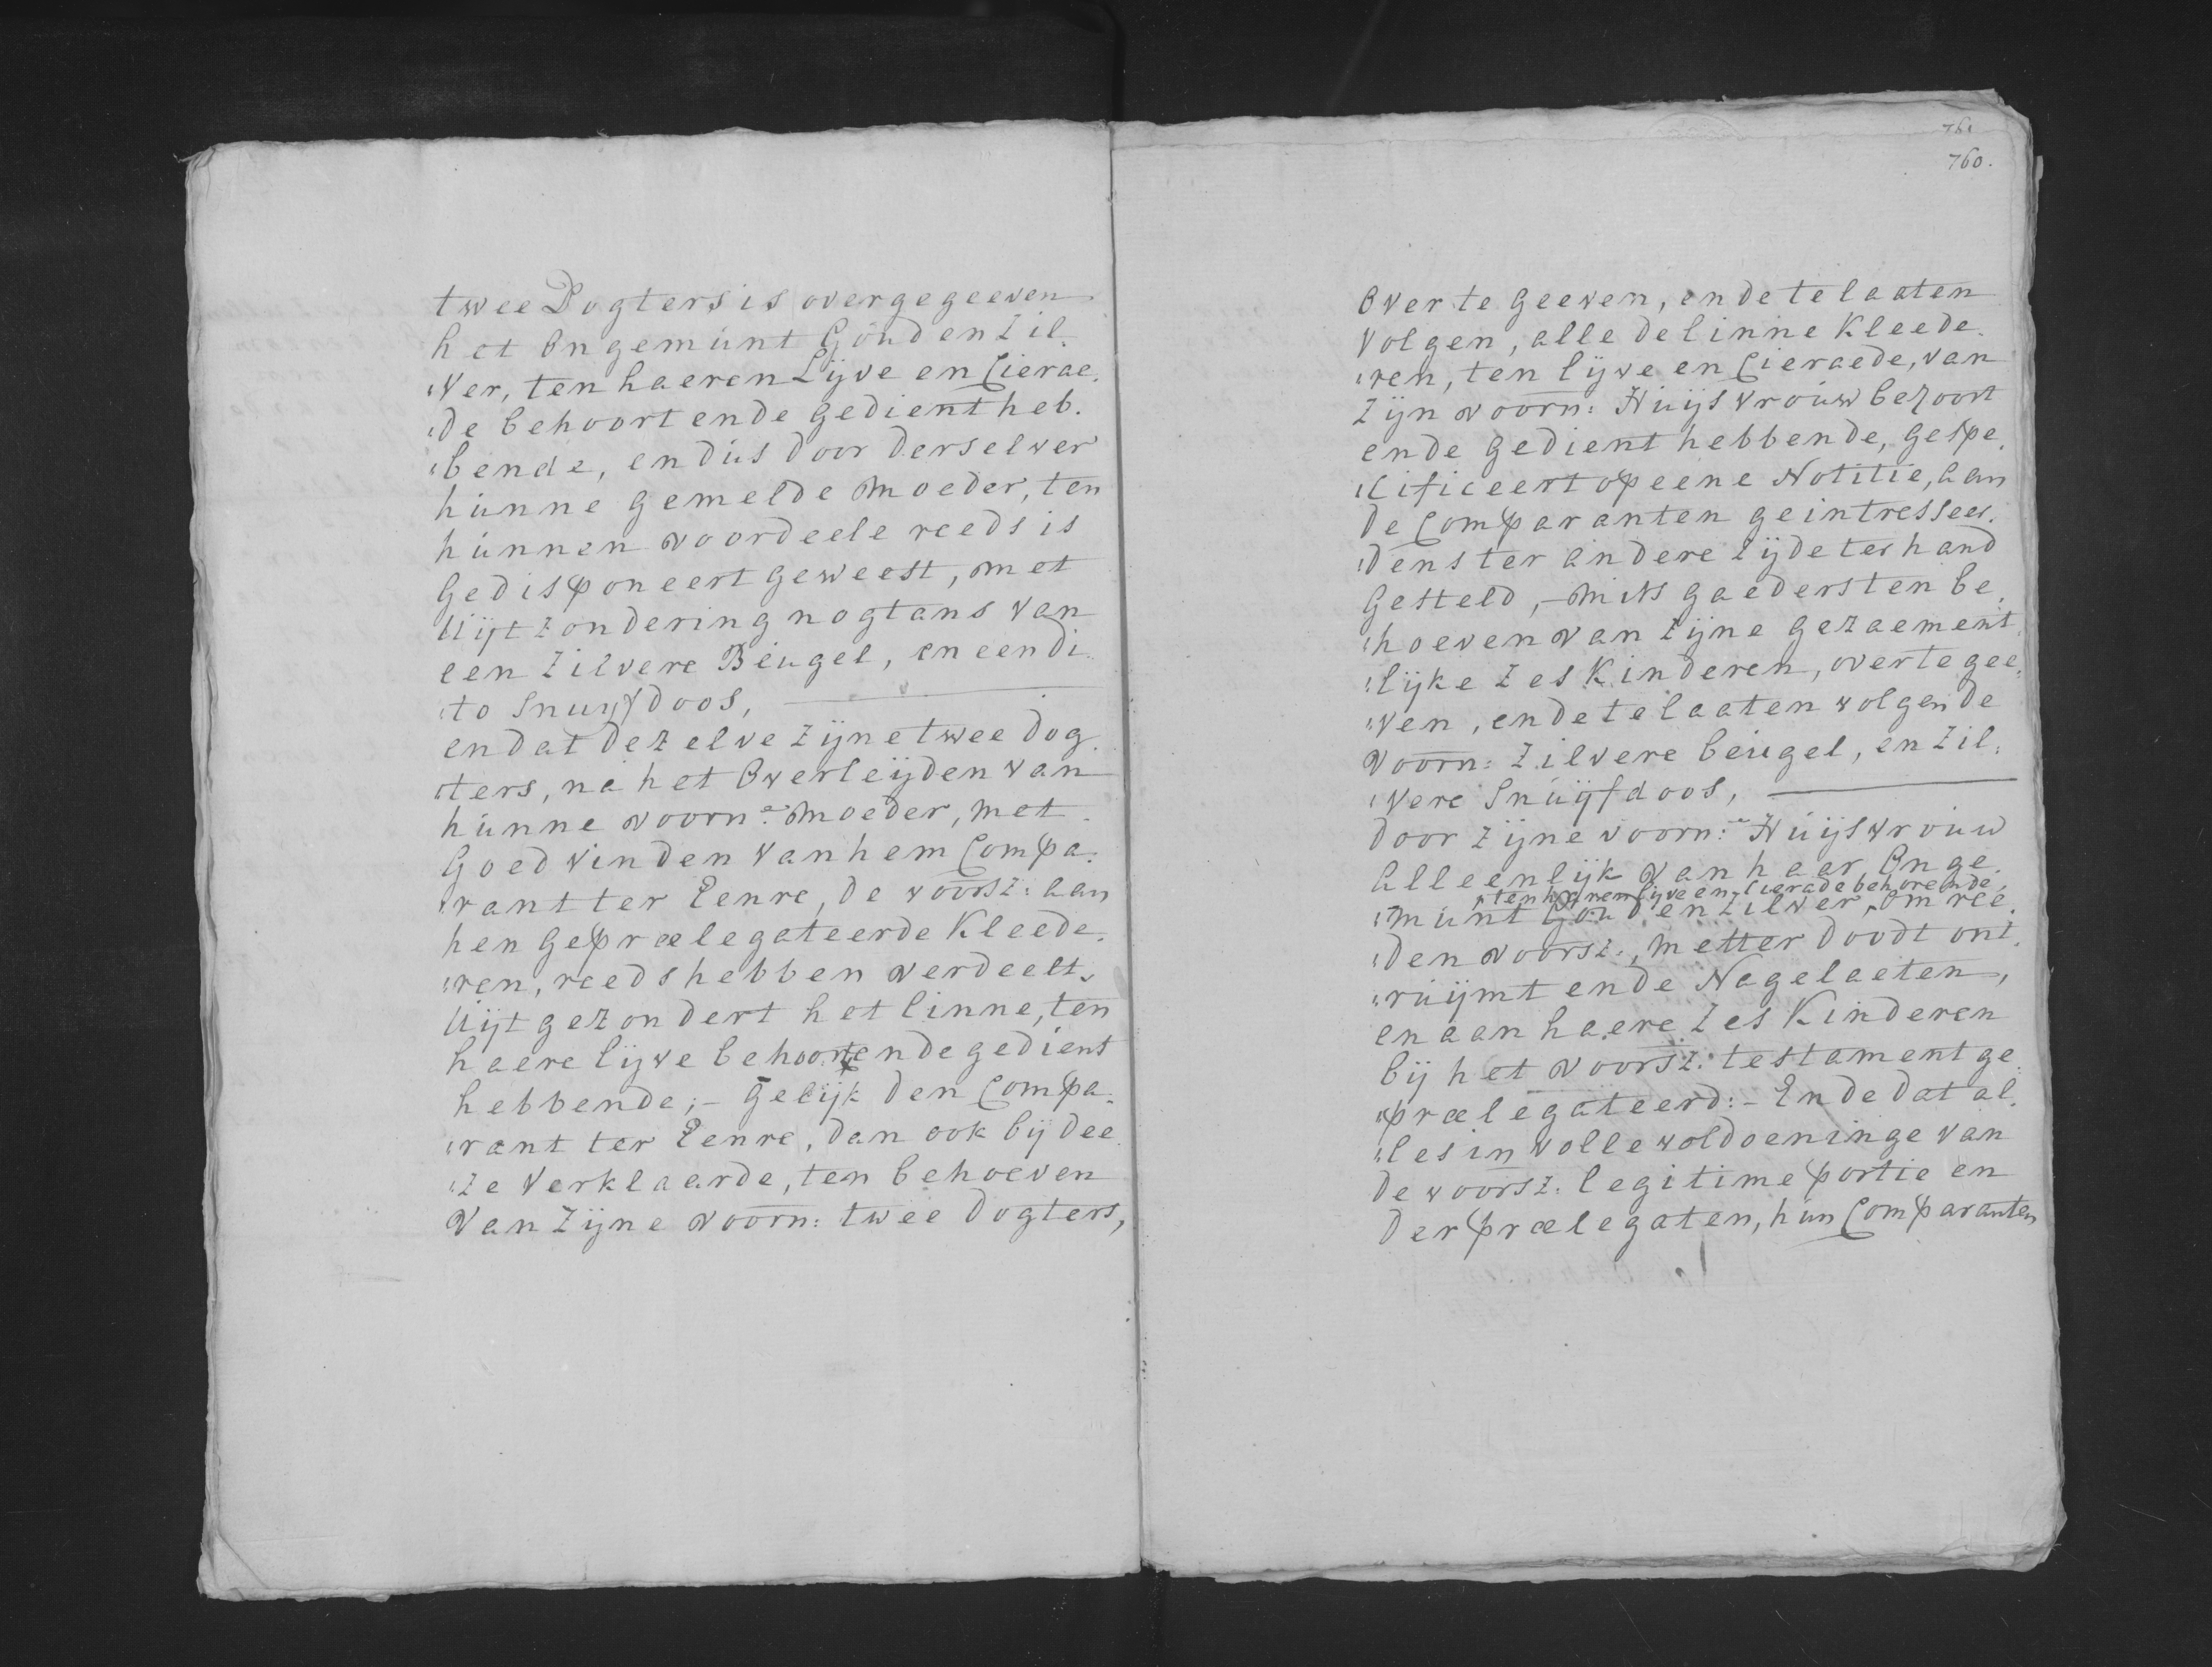 twee Dogters is overgegeeven
het Ongemunt Goud en Zil„
„ver, ten haeren Lijve en Cierae„
„de behoort ende gedient heb„
„bende, en dus door derselver
hunne gemelde Moeder, ten
hunnen voordeele reeds is
Gedisponeert geweest, met
Uijtzondering nogtans van
een Zilvere Beugel, en een di„
„to Snuijfdoos,
en dat dezelve zijne twee dog„
„ters, na het Overleijden van
hunne voorn:e Moeder, met
Goedvinden van hem Compa„
„rant ter Eenre, de voorsz: aan
hen Geprælegateerde Kleede„
„ren, reeds hebben verdeelt,
Uijtgezondert het linne, ten
haere lijve behoort ende gedient
hebbende; - Gelijk den Compa„
„rant ter Eenre, dan ook bij dee„
„ze Verklaarde, ten behoeven
van zijne voorn: twee Dogters,
761
760.
Over te Geeven, ende te laaten
volgen, alle de linne Kleede„
„ren, ten lijve en Cieraede, van
zijn voorn: Huijsvrouw behoort
ende Gedient hebbende, gespe„
„cificeert op eene Notitie, aan
de Comparanten geintressee„
„dens ter andere zijde ter hand
Gesteld, - Mits gaeders ten be„
„hoeven van zijne gezaement„
„lijke zes Kinderen, over te gee„
„ven, ende te laaten volgen de
Voorn: Zilvere beugel, en zil„
„vere Snuijfdoos,
door zijne voorn:e Huijsvrouw
Alleenlijk van haer Onge„
ten haren lijve en Cierade behorende,
„munt Goud en Zilver, om ree„
„den voorsz:, metter doodt ont„
„ruijmt ende Nagelaeten,
en aan haere zes Kinderen
bij het voorsz: testament ge„
„prælegateerd: - Ende dat al„
„les in volle voldoeninge van
de voorsz: legitime portie en
der Prælegaten, hun Comparanten